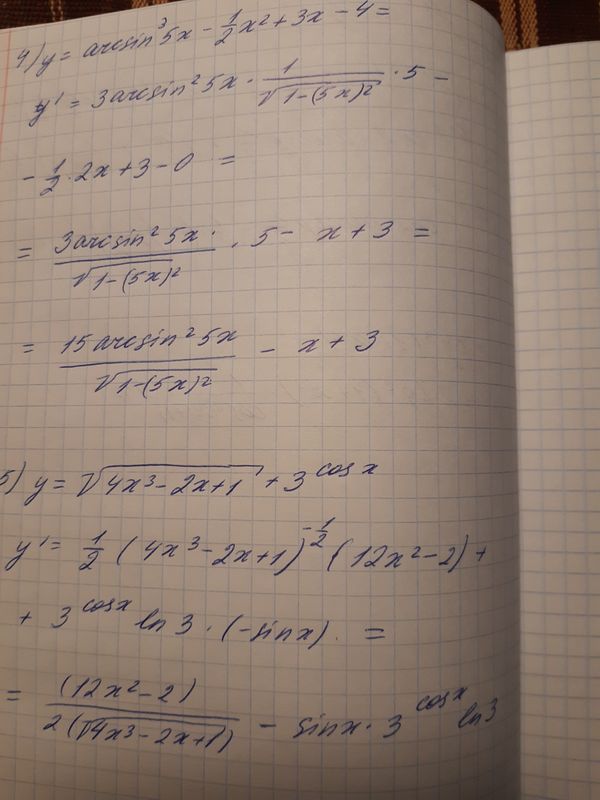 4) y = arcsin³ 5x - 1/2 x² + 3x - 4 =
y' = 3 arcsin² 5x · 1/√(1-(5x)²) · 5 -
- 1/2 · 2x + 3 - 0 =
= 3 arcsin² 5x · / √(1-(5x)²) · 5 - x + 3 =
= 15 arcsin² 5x / √(1-(5x)²) - x + 3
5) y = √(4x³ - 2x + 1) + 3^cosx
y' = 1/2 (4x³ - 2x + 1)^(-1/2) (12x² - 2) +
+ 3^cosx ln 3 · (-sinx) =
= (12x² - 2) / 2(√(4x³ - 2x + 1)) - sinx · 3^cosx ln 3